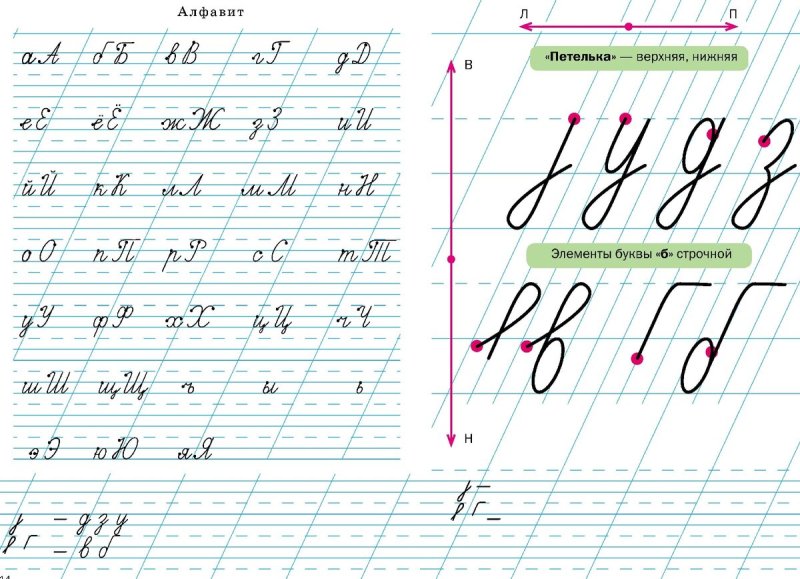 Алфавит
аА бБ вВ гГ дД
еЕ ёЁ жЖ зЗ иИ
йЙ кК лЛ мМ нН
оО пП рР сС тТ
уУ фФ хХ цЦ чЧ
шШ щЩ ъ ы ь
эЭ юЮ яЯ
– д з у
– в б
14
Л П
В
«Петелька» — верхняя, нижняя
у д з
Элементы буквы «б» строчной
в б
Н